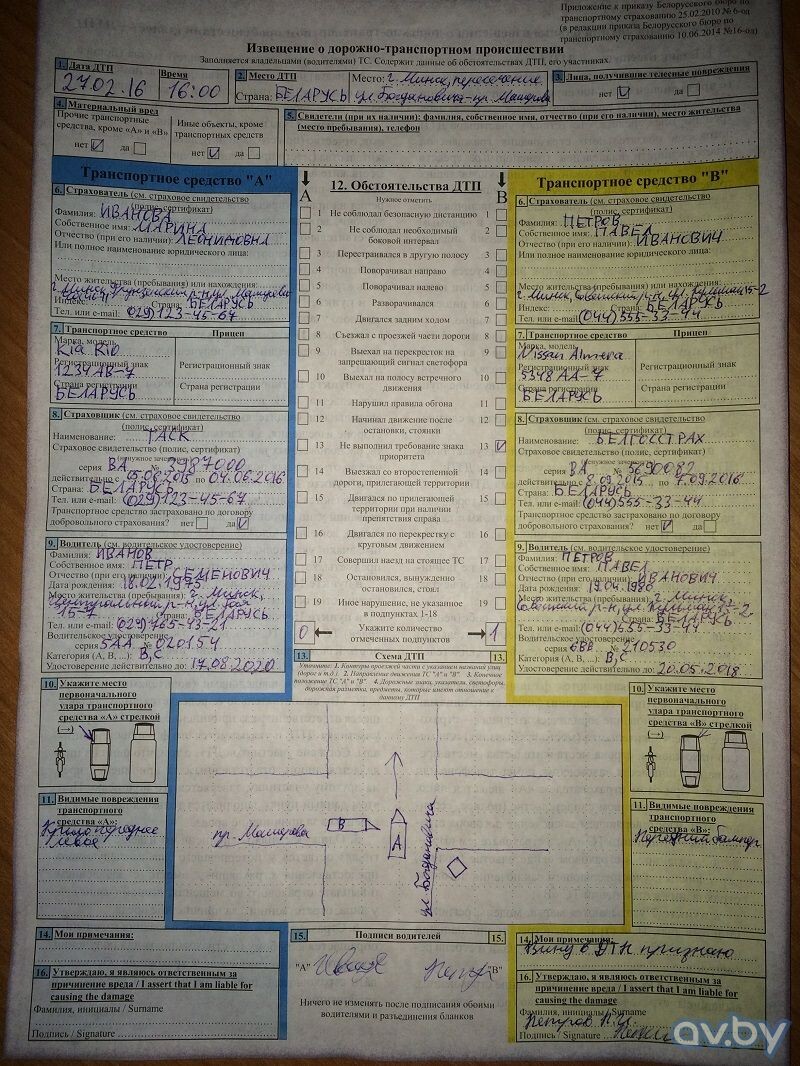 Приложение к приказу Белорусского бюро по
транспортному страхованию 25.02.2010 № 6-од
(в редакции приказа Белорусского бюро по
транспортному страхованию 10.06.2014 №16-од)
Извещение о дорожно-транспортном происшествии
Заполняется владельцами (водителями) ТС. Содержит данные об обстоятельствах ДТП, его участниках.
1. Дата ДТП Время
27.02.16 16:00
2. Место ДТП Место: г. Минск, пересечение
Страна: БЕЛАРУСЬ ул. Богдановича-пр. Машерова
3. Лица, получившие телесные повреждения
нет да
4. Материальный вред
Прочие транспортные средства, кроме «А» и «В»
нет да
Иные объекты, кроме транспортных средств
нет да
5. Свидетели (при их наличии): фамилия, собственное имя, отчество (при его наличии), место жительства
(место пребывания), телефон
Транспортное средство "А"
6. Страхователь (см. страховое свидетельство
(полис, сертификат)
Фамилия: ИВАНОВА
Собственное имя: МАРИНА
Отчество (при его наличии): ЛЕОНИДОВНА
Или полное наименование юридического лица:
Место жительства (пребывания) или нахождения:
Индекс: Страна: БЕЛАРУСЬ
Тел. или e-mail: (029)123-45-67
7. Транспортное средство Прицеп
Марка, модель
Kia Rio
Регистрационный знак Регистрационный знак
1234 АВ-7
Страна регистрации Страна регистрации
БЕЛАРУСЬ
8. Страховщик (см. страховое свидетельство
(полис, сертификат)
Наименование: ТАСК
Страховое свидетельство (полис, сертификат)
(ненужное зачеркнуть)
серия ВА № 3987000
действительно с 05.06.2015 по 04.06.2016
Страна: БЕЛАРУСЬ
Тел. или e-mail: (029)123-45-67
Транспортное средство застраховано по договору
добровольного страхования? нет да
9. Водитель (см. водительское удостоверение)
Фамилия: ИВАНОВ
Собственное имя: ПЕТР
Отчество (при его наличии): СЕМЕНОВИЧ
Дата рождения: 18.02.1975
Место жительства (пребывания): г. Минск,
15-7 Страна: БЕЛАРУСЬ
Тел. или e-mail: (029)765-43-21
Водительское удостоверение
серия 5АА № 020154
Категория (А, В, ...): В,С
Удостоверение действительно до: 17.08.2020
10. Укажите место
первоначального
удара транспортного
средства «А» стрелкой
(→)
11. Видимые повреждения
транспортного
средства «А»:
Крыло переднее
левое
14. Мои примечания:
16. Утверждаю, я являюсь ответственным за
причинение вреда / I assert that I am liable for
causing the damage
Фамилия, инициалы / Surname
Подпись / Signature
А В
12. Обстоятельства ДТП
Нужное отметить
1 Не соблюдал безопасную дистанцию 1
2 Не соблюдал необходимый боковой интервал 2
3 Перестраивался в другую полосу 3
4 Поворачивал направо 4
5 Поворачивал налево 5
6 Разворачивался 6
7 Двигался задним ходом 7
8 Съезжал с проезжей части дороги 8
9 Выехал на перекресток на запрещающий сигнал светофора 9
10 Выехал на полосу встречного движения 10
11 Нарушил правила обгона 11
12 Начинал движение после остановки, стоянки 12
13 Не выполнил требование знака приоритета 13
14 Выезжал со второстепенной дороги, прилегающей территории 14
15 Двигался по прилегающей территории при наличии препятствия справа 15
16 Двигался по перекрестку с круговым движением 16
17 Совершил наезд на стоящее ТС 17
18 Остановился, вынужденно остановился, стоял 18
19 Иное нарушение, не указанное в подпунктах 1-18 19
0 Укажите количество отмеченных подпунктов 1
13. Схема ДТП 13.
Уточните: 1. Контуры проезжей части с указанием названий улиц
(дорог и т.д.). 2. Направление движения ТС "А" и "В". 3. Конечное
положение ТС "А" и "В". 4. Дорожные знаки, указатели, светофоры,
дорожная разметка, предметы, которые имеют отношение к
данному ДТП
пр. Машерова
В
А
ул Богдановича
15. Подписи водителей 15.
"А" "В"
Ничего не изменять после подписания обоими
водителями и разъединения бланков
Транспортное средство "В"
6. Страхователь (см. страховое свидетельство
(полис, сертификат)
Фамилия: ПЕТРОВ
Собственное имя: ПАВЕЛ
Отчество (при его наличии): ИВАНОВИЧ
Или полное наименование юридического лица:
Место жительства (пребывания) или нахождения:
Индекс: Страна: БЕЛАРУСЬ
Тел. или e-mail: (044)555-33-44
7. Транспортное средство Прицеп
Марка, модель
Nissan Almera
Регистрационный знак Регистрационный знак
5348 АА-7
Страна регистрации Страна регистрации
БЕЛАРУСЬ
8. Страховщик (см. страховое свидетельство
(полис, сертификат)
Наименование: БЕЛГОССТРАХ
Страховое свидетельство (полис, сертификат)
(ненужное зачеркнуть)
серия ВА № 5690082
действительно с 8.09.2015 по 7.09.2016
Страна: БЕЛАРУСЬ
Тел. или e-mail: (044)555-33-44
Транспортное средство застраховано по договору
добровольного страхования? нет да
9. Водитель (см. водительское удостоверение)
Фамилия: ПЕТРОВ
Собственное имя: ПАВЕЛ
Отчество (при его наличии): ИВАНОВИЧ
Дата рождения: 19.04.1980
Место жительства (пребывания): г. Минск,
Страна: БЕЛАРУСЬ
Тел. или e-mail: (044)555-33-44
Водительское удостоверение
серия 6ВВ № 210530
Категория (А, В, ...): В,С
Удостоверение действительно до: 20.05.2018
10. Укажите место
первоначального
удара транспортного
средства «В» стрелкой
(→)
11. Видимые повреждения
транспортного
средства «В»:
Передний бампер
14. Мои примечания:
Вину в ДТП признаю
16. Утверждаю, я являюсь ответственным за
причинение вреда / I assert that I am liable for
causing the damage
Фамилия, инициалы / Surname
Петров П.И.
Подпись / Signature
av.by